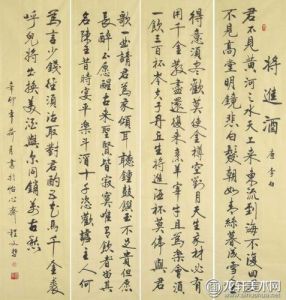 将進酒 唐 李白
君不見黄河之水天上来東流到海不復回君
不見高堂明鏡悲白髮朝如青絲暮成雪人生
得意須盡歡莫使金樽空對月天生我材必有
用千金散盡還復来烹羊宰牛且為樂會須
一飲三百杯岑夫子丹丘生将進酒杯莫停與君
歌一曲請君為我傾耳聽鐘鼓饌玉不足貴但願
長醉不願醒古来聖賢皆寂寞惟有飲者留其
名陳王昔時宴平樂斗酒十千恣歡謔主人何
為言少錢徑須沽取對君酌五花馬千金裘
呼兒将出換美酒與爾同銷萬古愁
辛卯年荷月書於怡心齋程文
龙轩美术网